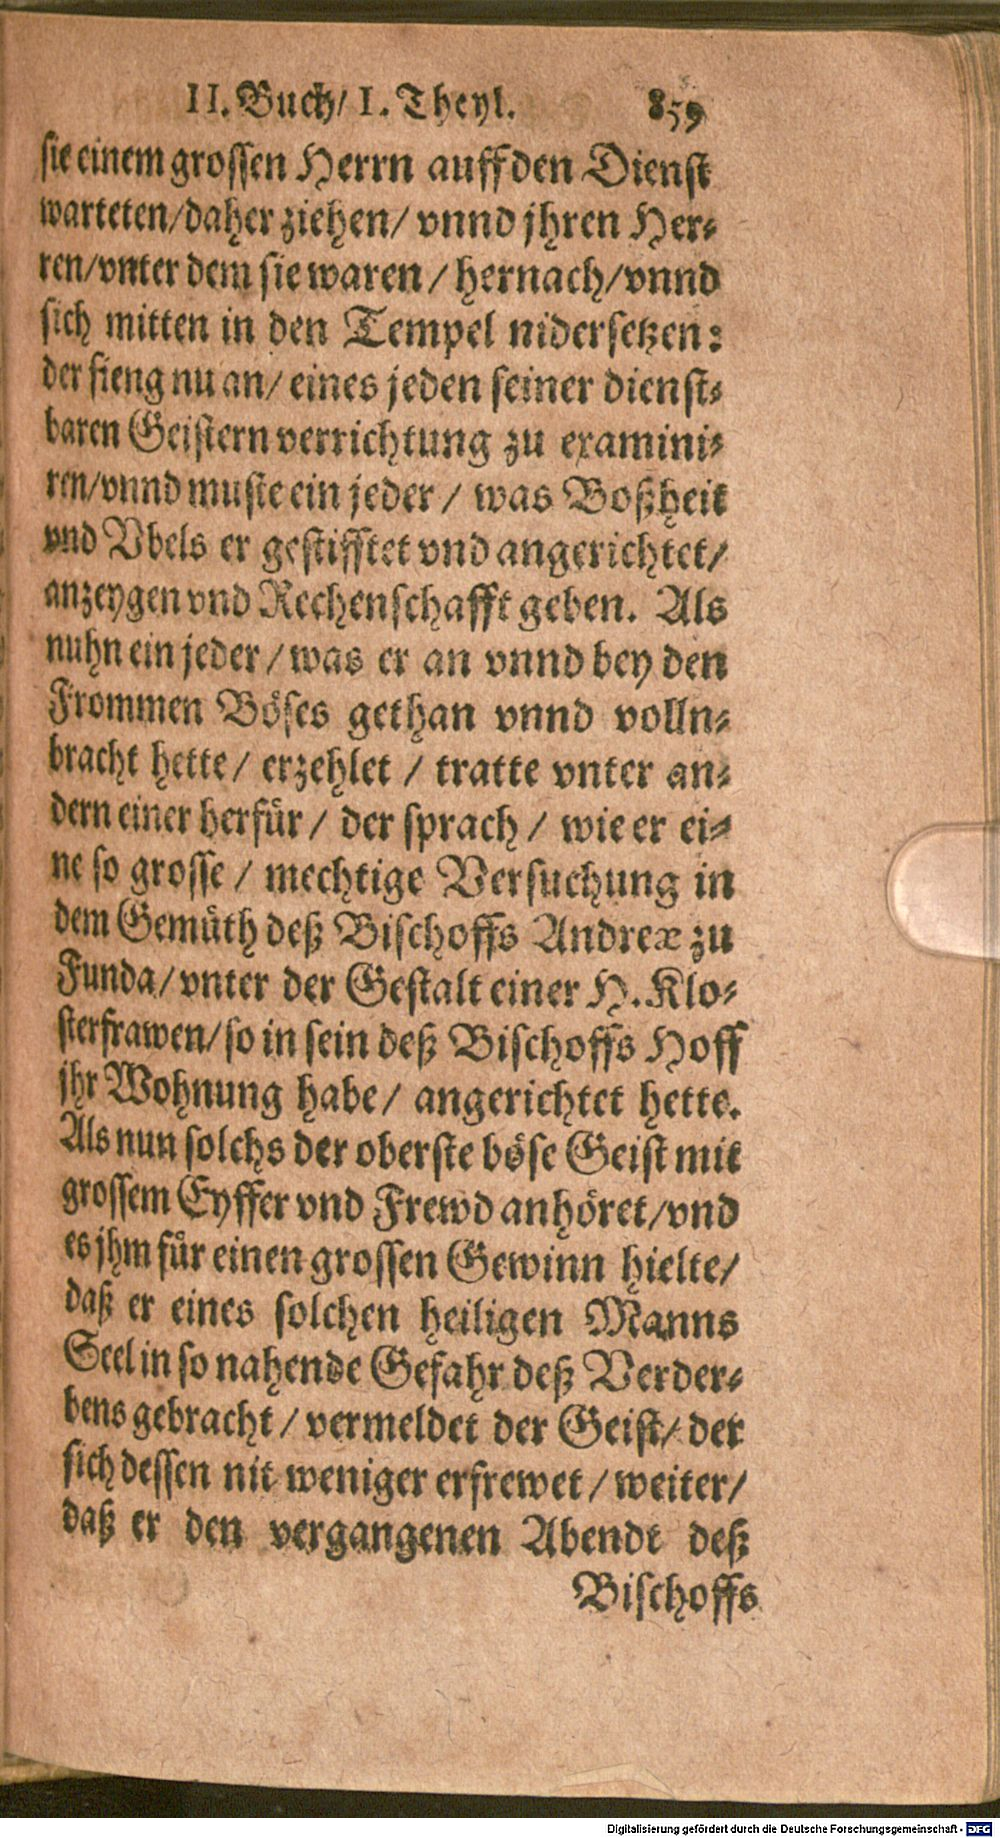 II. Buch/ I. Theyl. 859
sie einem grossen Herrn auff den Dienst
warteten/daher ziehen/ vnnd jhren Her-
ren/vnter dem sie waren / hernach/vnnd
sich mitten in den Tempel nidersetzen:
der fieng nu an/ eines jeden seiner dienst-
baren Geistern verrichtung zu examini-
ren/vnnd muste ein jeder / was Boßheit
vnd Vbels er gestifftet vnd angerichtet/
anzeygen vnd Rechenschafft geben. Als
nuhn ein jeder / was er an vnnd bey den
Frommen Böses gethan vnnd volln-
bracht hette/ erzehlet / tratte vnter an-
dern einer herfür / der sprach / wie er ei-
ne so grosse / mechtige Versuchung in
dem Gemüth deß Bischoffs Andreæ zu
Funda/ vnter der Gestalt einer H. Klo-
sterfrawen/ so in sein deß Bischoffs Hoff
jhr Wohnung habe/ angerichtet hette.
Als nun solchs der oberste böse Geist mit
grossem Eyffer vnd Frewd anhöret/vnd
es jhm für einen grossen Gewinn hielte/
daß er eines solchen heiligen Manns
Seel in so nahende Gefahr deß Verder-
bens gebracht / vermeldet der Geist/ der
sich dessen nit weniger erfrewet / weiter/
daß er den vergangenen Abendt deß
Bischoffs
Digitalisierung gefördert durch die Deutsche Forschungsgemeinschaft - DFG